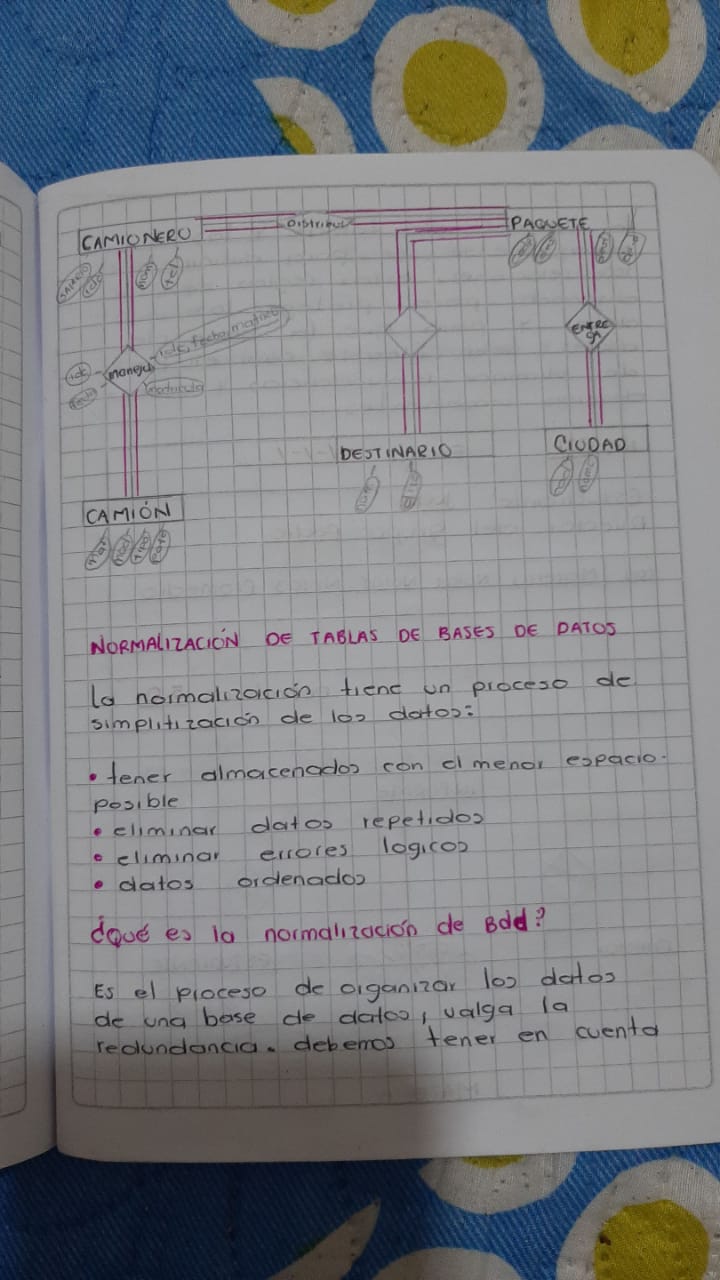 CAMIONERO
PAQUETE
nom
tel
maneja
idc, fecha, matricu
idc
fecha
matricula
ENTREGA
DESTINARIO
CIUDAD
CAMIÓN
mat
mod
tipo
NORMALIZACIÓN DE TABLAS DE BASES DE DATOS
la normalización tiene un proceso de
simplitización de los datos:
• tener almacenados con el menor espacio.
posible
• eliminar datos repetidos
• eliminar errores logicos
• datos ordenados
¿Qué es la normalización de Bdd?
Es el proceso de organizar los datos
de una base de datos, valga la
redundancia. debemos tener en cuenta